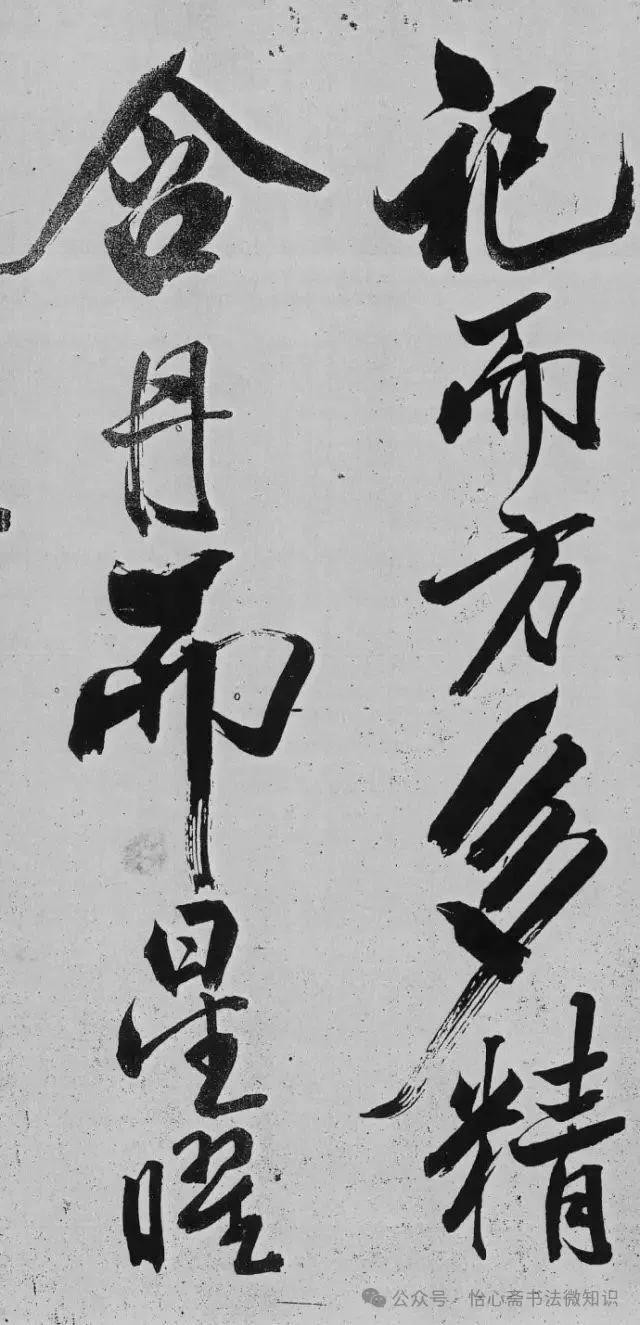 祀而方多精
含丹而星曜
公众号 · 怡心斋书法微知识